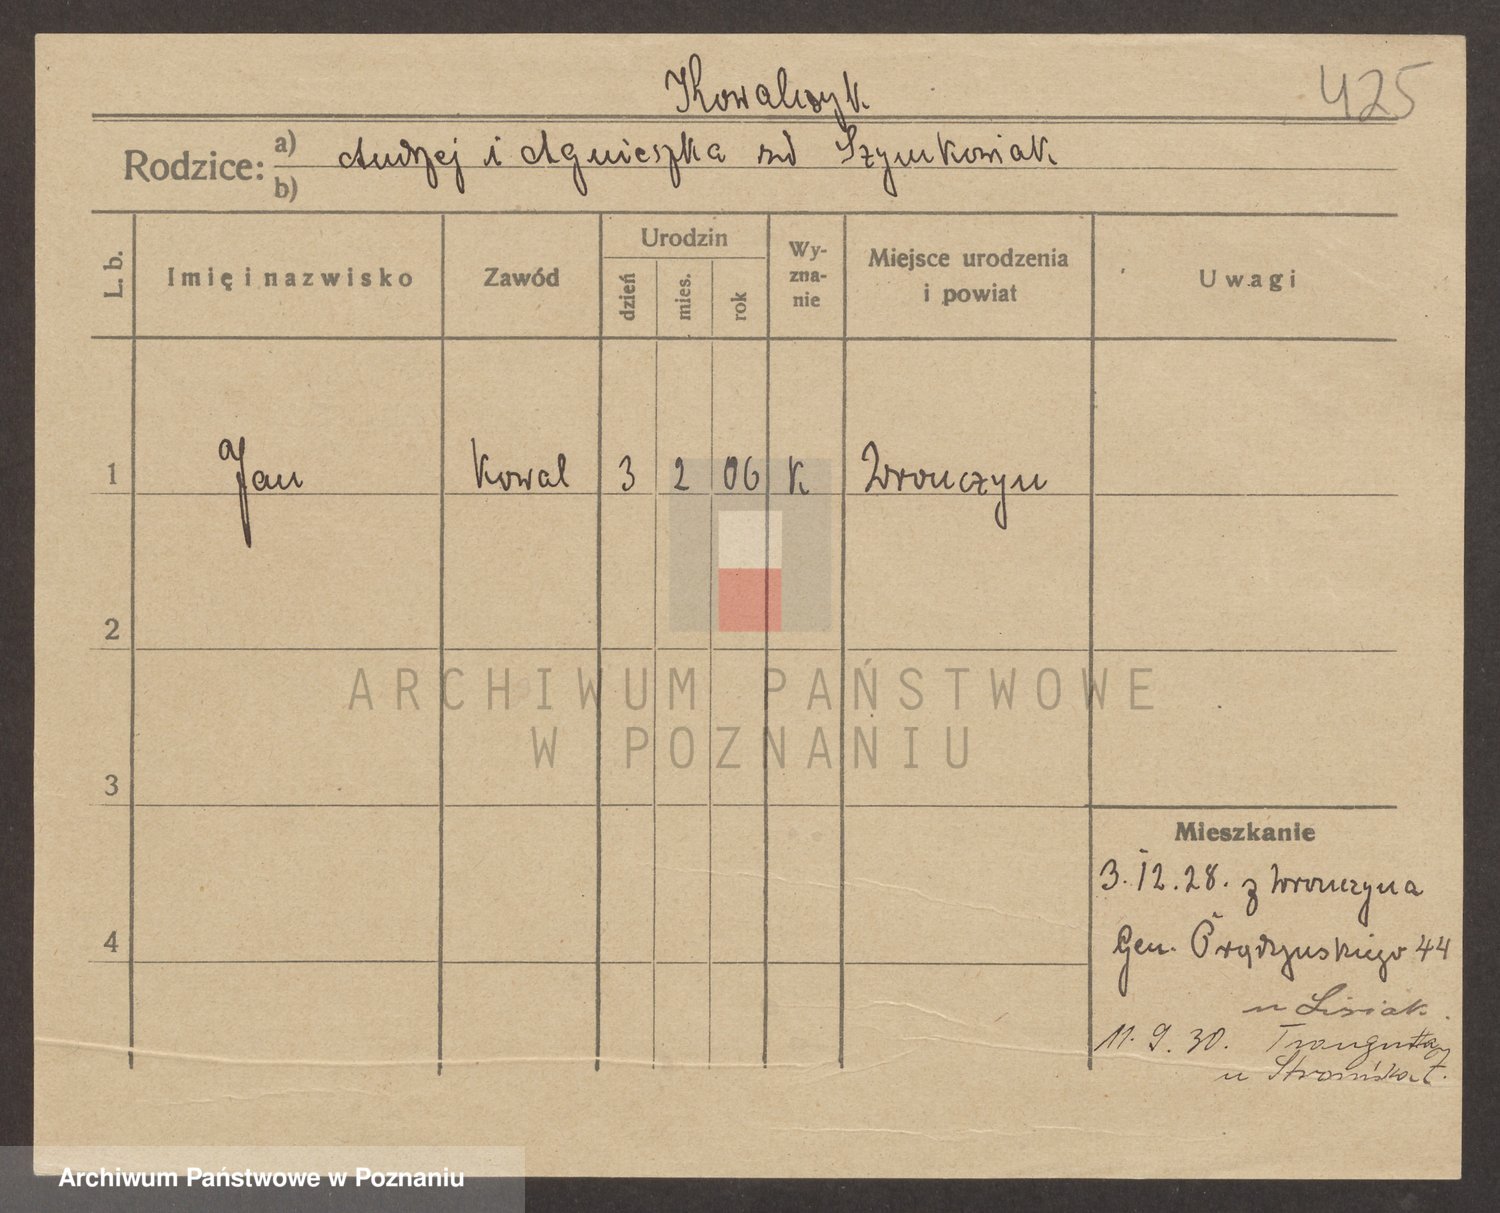 Kowalczyk
425
Rodzice: a) Andrzej i Agnieszka zd Szymkowiak
b)
L. b.
Imię i nazwisko
Zawód
Urodzin
dzień
mies.
rok
Wy-
zna-
nie
Miejsce urodzenia
i powiat
Uwagi
1 Jan Kowal 3 2 06 K Wronczyn
2
3
4
Mieszkanie
3.12.28. z Wronczyna
Gen. Prądzynskiego 44
u Lisiak.
11.9.30. Traugutta 7.
u
ARCHIWUM PAŃSTWOWE
W POZNANIU
Archiwum Państwowe w Poznaniu